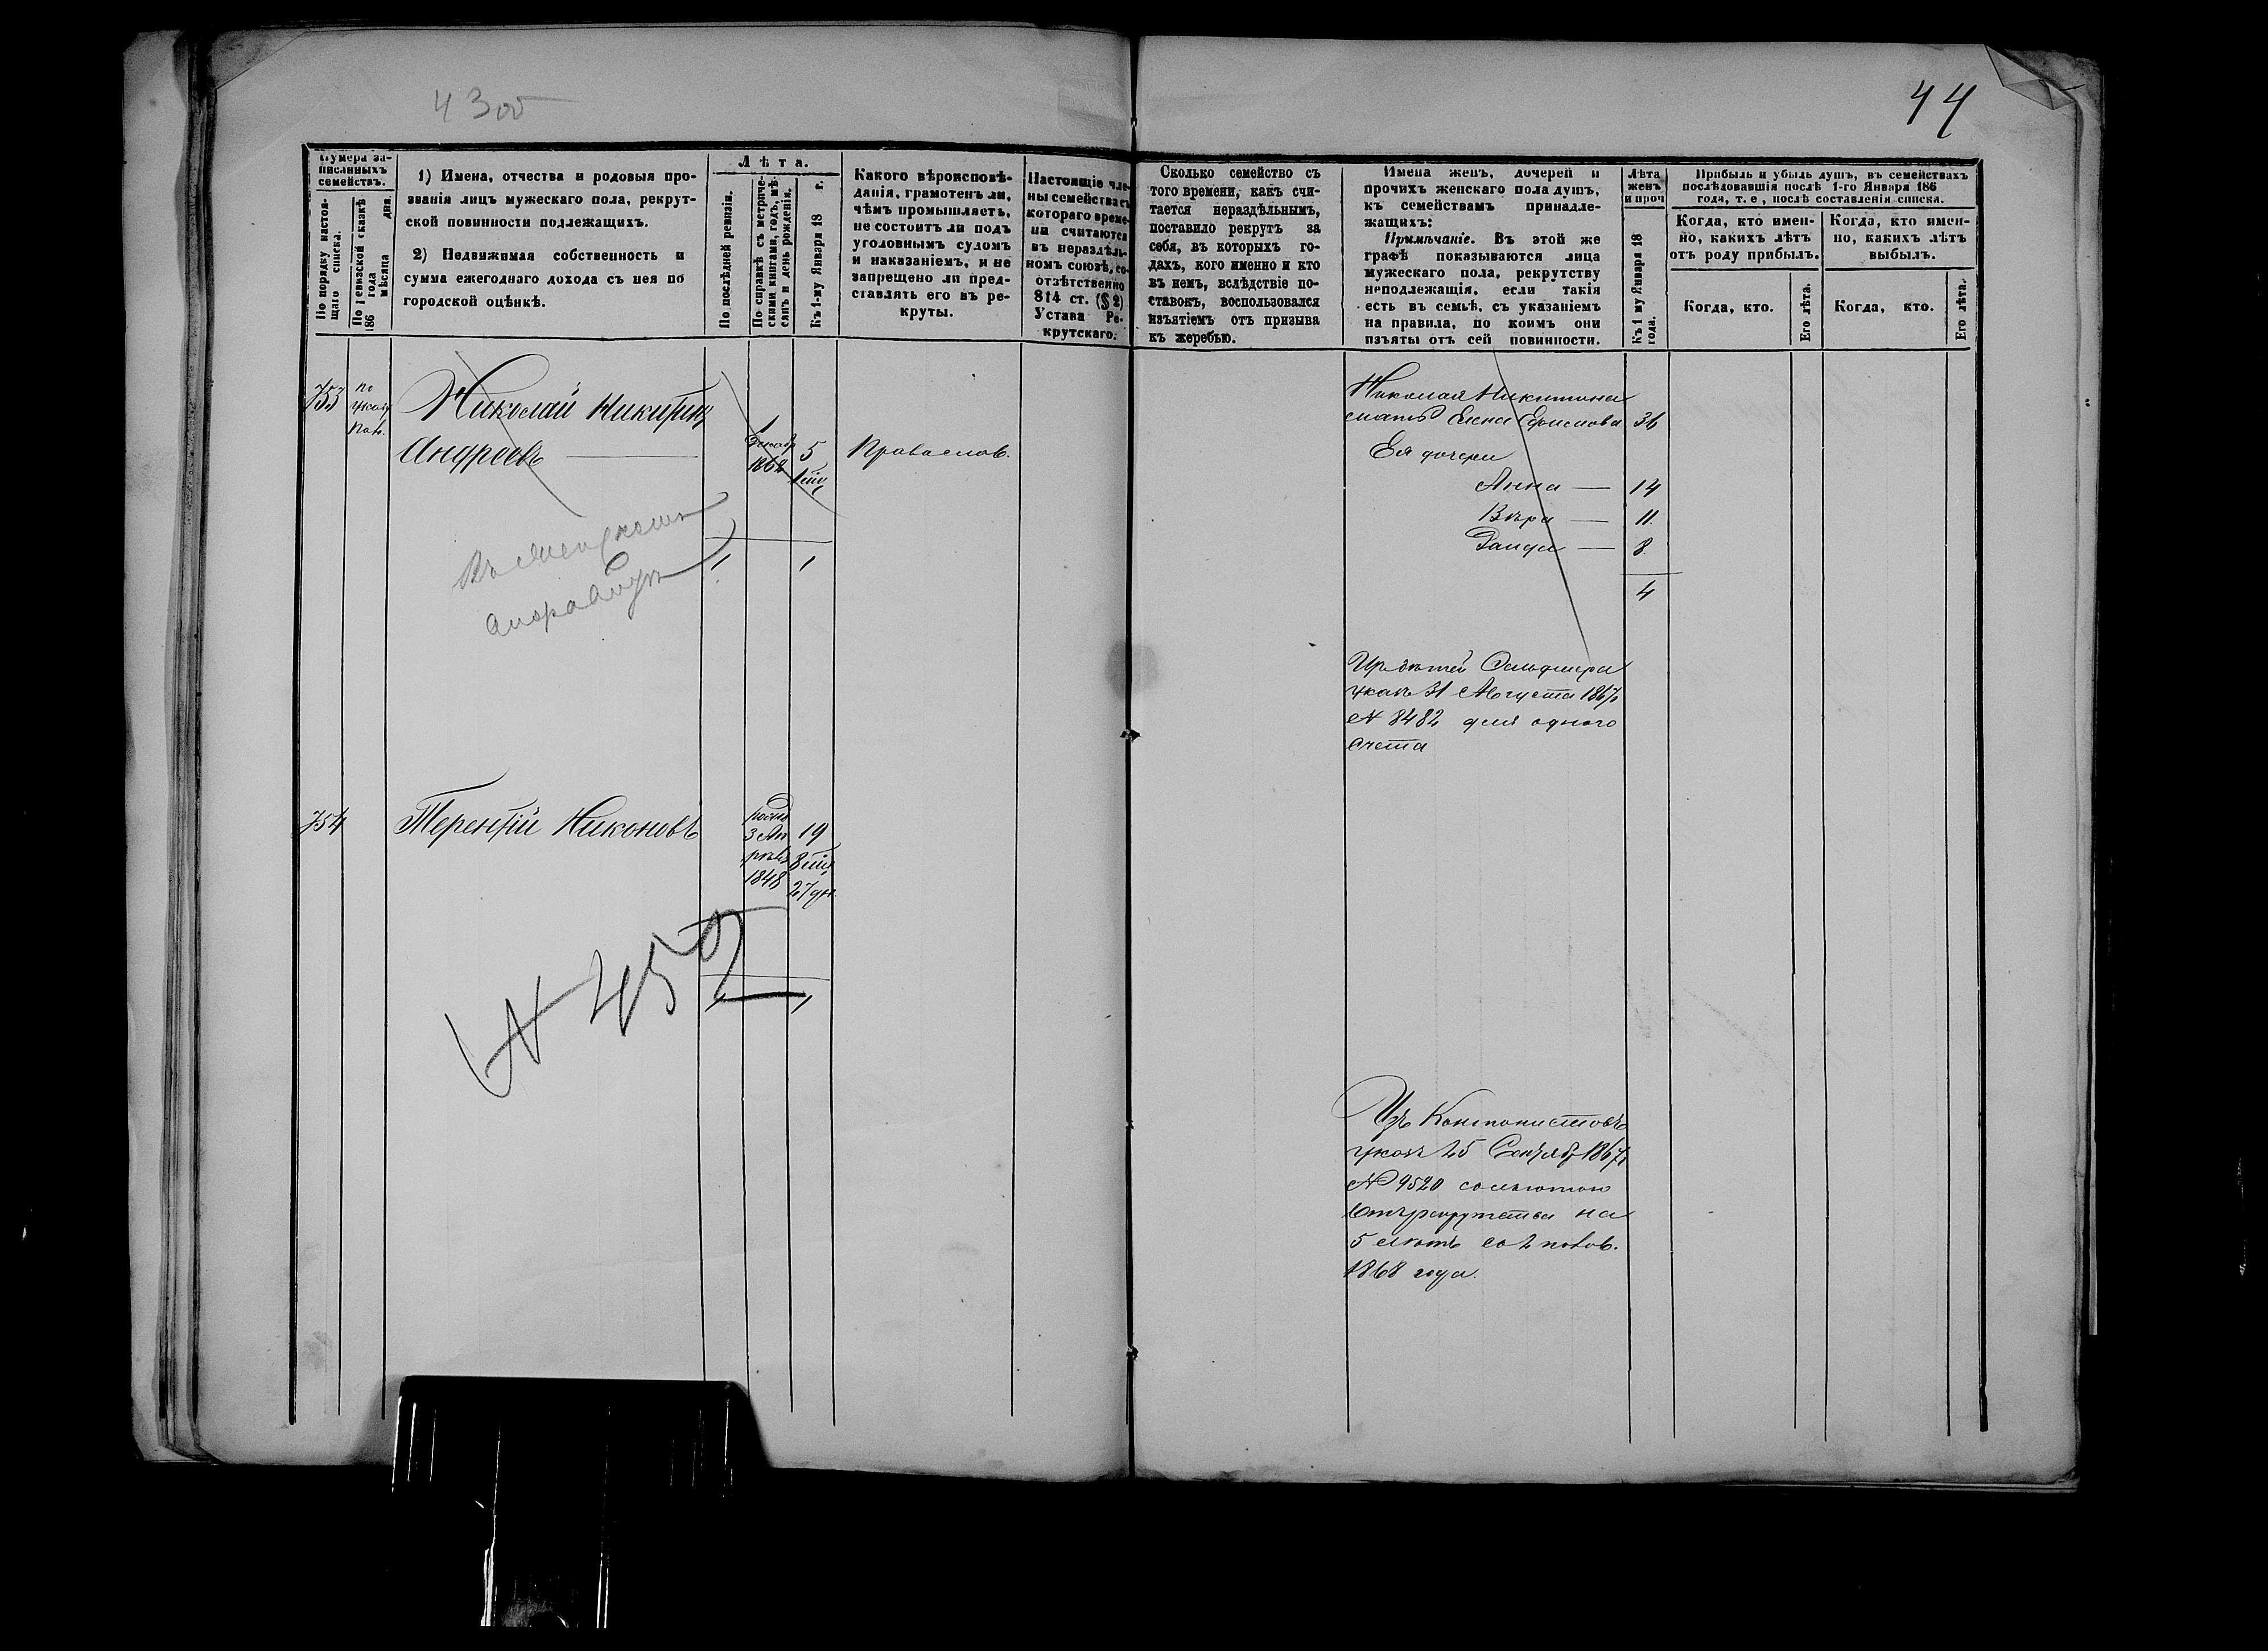 4300
44
Нумера записанныхъ семействъ.
По порядку настоящаго списка.
По ревизской сказкѣ 186 года мѣсяца дня.
1) Имена, отчества и родовыя про-
званія лицъ мужескаго пола, рекрут-
ской повинности подлежащихъ.
2) Недвижимая собственность и
сумма ежегоднаго дохода съ нея по
городской оцѣнкѣ.
Лѣта.
По послѣдней ревизіи.
По справкѣ съ метриче-
скими книгами, годъ, мѣ-
сяцъ и день рожденія.
Къ 1-му Января 18 г.
Какого вѣроисповѣ-
данія, грамотенъ ли,
чѣмъ промышляетъ,
не состоитъ ли подъ
уголовнымъ судомъ
и наказаніемъ, и не
запрещено ли пред-
ставлять его въ ре-
круты.
Настоящіе чле-
ны семейства съ
котораго време-
ни считаются
въ нераздѣль-
номъ союзѣ, со-
отвѣтственно
814 ст. (§ 2)
Устава Ре-
крутскаго.
Сколько семейство съ
того времени, какъ счи-
тается нераздѣльнымъ,
поставило рекрутъ за
себя, въ которыхъ го-
дахъ, кого именно и кто
въ немъ, вслѣдствіе по-
ставокъ, воспользовался
изъятіемъ отъ призыва
къ жеребью.
Имена женъ, дочерей и
прочихъ женскаго пола душъ,
къ семействамъ принадле-
жащихъ:
Примѣчаніе. Въ этой же
графѣ показываются лица
мужескаго пола, рекрутству
неподлежащія, если такія
есть въ семьѣ, съ указаніемъ
на правила, по коимъ они
изъяты отъ сей повинности.
Лѣта
женъ
и проч
Къ 1 му Января 18
года.
Прибыль и убыль душъ, въ семействахъ
послѣдовавшія послѣ 1-го Января 186
года, т. е, послѣ составленія списка.
Когда, кто имен-
но, какихъ лѣтъ
отъ роду прибылъ.
Когда, кто имен-
но, какихъ лѣтъ
выбылъ.
Когда, кто.
Его лѣта.
Когда, кто.
Его лѣта.
753
по
указу
Пал.
Николай Никитинъ
Андреевъ
1
Декабр
1862
5
1 мѣс
Правослов.
1
1
Николая Никитина
мать Елена Ефимова 36
Ея дочери
Анна — 14
Вѣра — 11
8
4
указъ 31 Августа 1867
№ 8482 для одного
счета
754
Терентій Никоновъ
родил
3 Ап
рѣля
1848
19
8 мѣс
27 дн.
№ 452
1
1
Изъ Кантонистовъ
указъ 25 Сентяб 1867
№ 9520 сольготою
отъ рекрутства на
5 лѣтъ со 2 полов.
1868 года.